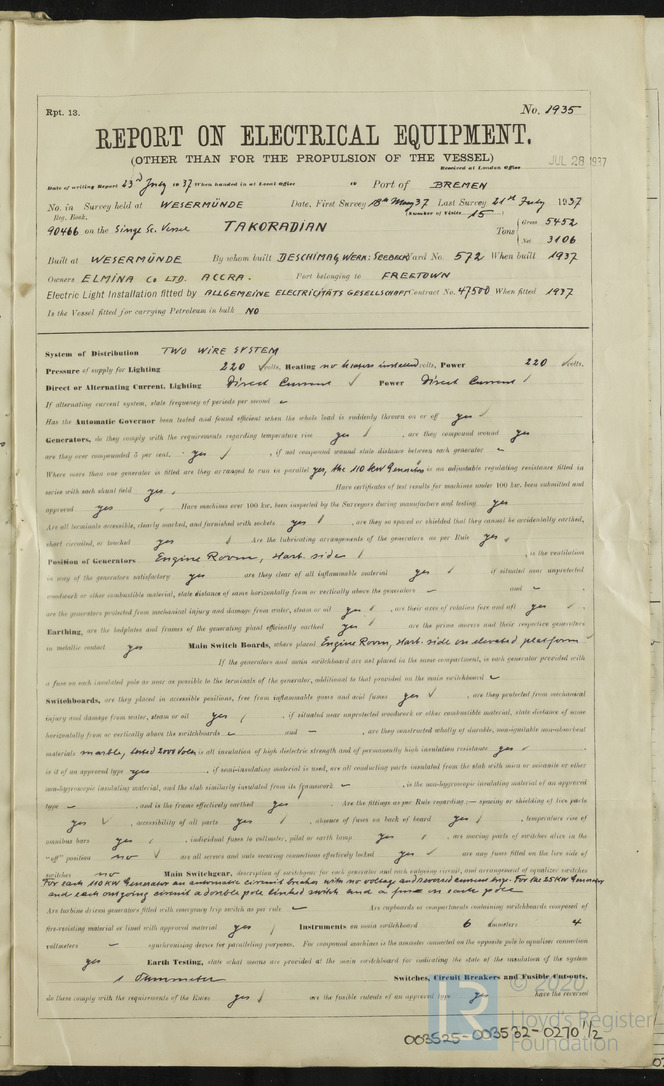 Rpt. 13. No. 1935
REPORT ON ELECTRICAL EQUIPMENT.
(OTHER THAN FOR THE PROPULSION OF THE VESSEL)
Received at London Office JUL 28 1937
Date of writing Report 23rd July 1937 When handed in at Local Office 19 Port of BREMEN
No. in Survey held at WESERMÜNDE Date, First Survey 18th May 37 Last Survey 21st July 1937
Reg. Book. (Number of Visits 15)
90466 on the Single Sc. Vessel TAKORADIAN Tons Gross 5452
Net 3106
Built at WESERMÜNDE By whom built DESCHIMAG, WERK: SEEBECK Yard No. 572 When built 1937
Owners ELMINA Co LTD. ACCRA. Port belonging to FREETOWN
Electric Light Installation fitted by ALLGEMEINE ELECTRICITÄTS GESELLSCHAFT Contract No. 47500 When fitted 1937
Is the Vessel fitted for carrying Petroleum in bulk NO
System of Distribution TWO WIRE SYSTEM
Pressure of supply for Lighting 220 volts, Heating no heaters installed volts, Power 220 volts.
Direct or Alternating Current, Lighting Direct Current Power Direct Current
If alternating current system, state frequency of periods per second –
Has the Automatic Governor been tested and found efficient when the whole load is suddenly thrown on or off yes
Generators, do they comply with the requirements regarding temperature rise yes, are they compound wound yes
are they over compounded 5 per cent. yes, if not compound wound state distance between each generator –
Where more than one generator is fitted are they arranged to run in parallel yes, the 110 KW Generators is an adjustable regulating resistance fitted in
series with each shunt field yes. Have certificates of test results for machines under 100 kw. been submitted and
approved yes Have machines over 100 kw. been inspected by the Surveyors during manufacture and testing yes
Are all terminals accessible, clearly marked, and furnished with sockets yes, are they so spaced or shielded that they cannot be accidentally earthed,
short circuited, or touched yes Are the lubricating arrangements of the generators as per Rule yes
Position of Generators Engine Room, starb. side, is the ventilation
in way of the generators satisfactory yes are they clear of all inflammable material yes if situated near unprotected
woodwork or other combustible material, state distance of same horizontally from or vertically above the generators – and –
are the generators protected from mechanical injury and damage from water, steam or oil yes, are their axes of rotation fore and aft yes
Earthing, are the bedplates and frames of the generating plant efficiently earthed yes are the prime movers and their respective generators
in metallic contact yes Main Switch Boards, where placed Engine Room, starb. side on elevated platform
If the generators and main switchboard are not placed in the same compartment, is each generator provided with
a fuse on each insulated pole as near as possible to the terminals of the generator, additional to that provided on the main switchboard –
Switchboards, are they placed in accessible positions, free from inflammable gases and acid fumes yes, are they protected from mechanical
injury and damage from water, steam or oil yes, if situated near unprotected woodwork or other combustible material, state distance of same
horizontally from or vertically above the switchboards – and –, are they constructed wholly of durable, non-ignitable non-absorbent
materials marble, tested 2000 Volts is all insulation of high dielectric strength and of permanently high insulation resistance yes
is it of an approved type yes, if semi-insulating material is used, are all conducting parts insulated from the slab with mica or micanite or other
non-hygroscopic insulating material, and the slab similarly insulated from its framework –, is the non-hygroscopic insulating material of an approved
type –, and is the frame effectively earthed yes. Are the fittings as per Rule regarding:— spacing or shielding of live parts
yes, accessibility of all parts yes, absence of fuses on back of board yes, temperature rise of
omnibus bars yes, individual fuses to voltmeter, pilot or earth lamp yes, are moving parts of switches alive in the
"off" position no are all screws and nuts securing connections effectively locked yes are any fuses fitted on the live side of
switches no Main Switchgear, description of switchgear for each generator and each outgoing circuit, and arrangement of equaliser switches
For each 110 KW Generator an automatic circuit breaker with no voltage and reversed current trip. For the 25 KW Generator
and each outgoing circuit a double pole linked switch and a fuse in each pole
Are turbine driven generators fitted with emergency trip switch as per rule – Are cupboards or compartments containing switchboards composed of
fire-resisting material or lined with approved material yes Instruments on main switchboard 6 ammeters 4
voltmeters – synchronising device for paralleling purposes. For compound machines is the ammeter connected on the opposite pole to equaliser connection
yes Earth Testing, state what means are provided at the main switchboard for indicating the state of the insulation of the system
Switches, Circuit Breakers and Fusible Cut-outs,
do these comply with the requirements of the Rules yes are the fusible cutouts of an approved type yes have the reversed
© 2020
Lloyd's Register
Foundation
003525-003532-0270 1/2